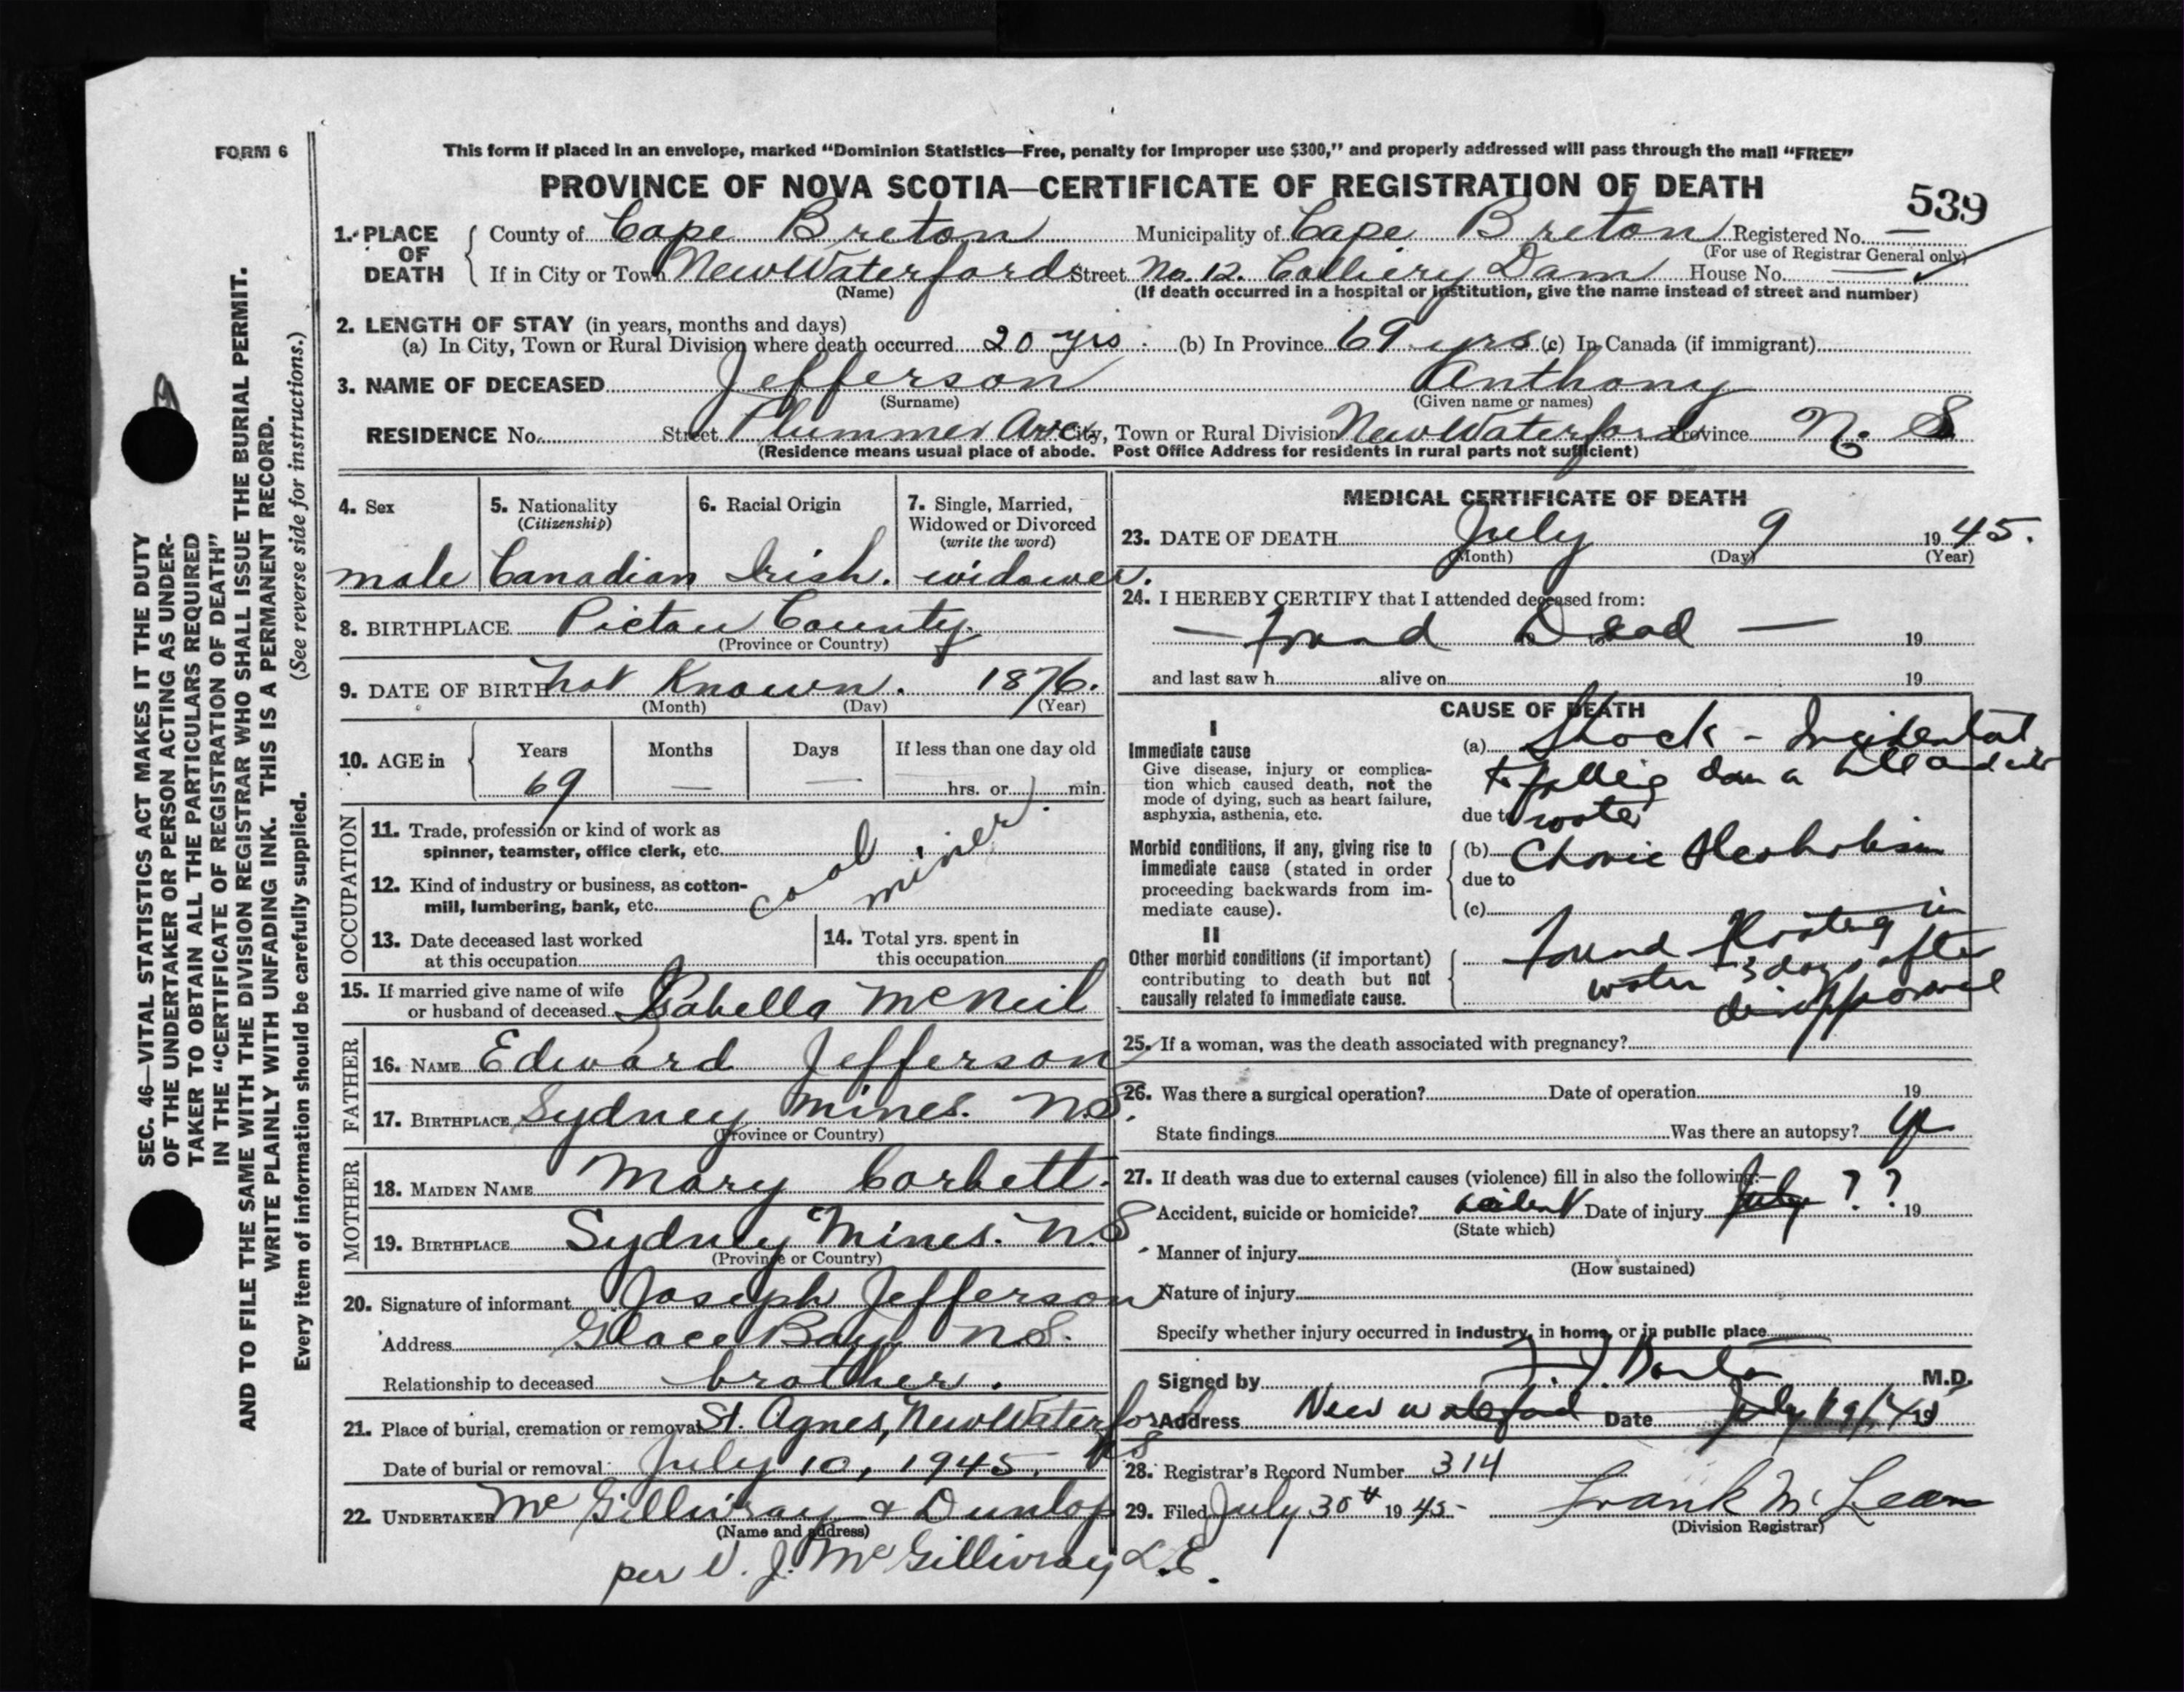 FORM 6
This form if placed in an envelope, marked “Dominion Statistics—Free, penalty for improper use $300,” and properly addressed will pass through the mail “FREE”
PROVINCE OF NOVA SCOTIA—CERTIFICATE OF REGISTRATION OF DEATH
539
1. PLACE OF DEATH County of Cape Breton Municipality of Cape Breton Registered No. —
(For use of Registrar General only)
If in City or Town New Waterford Street No. 12. Colliery Dam House No. —
(Name) (If death occurred in a hospital or institution, give the name instead of street and number)
2. LENGTH OF STAY (in years, months and days)
(a) In City, Town or Rural Division where death occurred 20 yrs. (b) In Province 69 yrs (c) In Canada (if immigrant)
3. NAME OF DECEASED Jefferson Anthony
(Surname) (Given name or names)
RESIDENCE No. Street Plummer Ave City, Town or Rural Division New Waterford Province N. S
(Residence means usual place of abode. Post Office Address for residents in rural parts not sufficient)
4. Sex
male
5. Nationality
(Citizenship)
Canadian
6. Racial Origin
Irish.
7. Single, Married,
Widowed or Divorced
(write the word)
widower.
8. BIRTHPLACE Pictou County
(Province or Country)
9. DATE OF BIRTH not Known. 1876.
(Month) (Day) (Year)
10. AGE in
Years Months Days If less than one day old
69 — — hrs. or min.
OCCUPATION
11. Trade, profession or kind of work as
spinner, teamster, office clerk, etc.
12. Kind of industry or business, as cotton-
mill, lumbering, bank, etc.
coal miner.
13. Date deceased last worked
at this occupation
14. Total yrs. spent in
this occupation
15. If married give name of wife
or husband of deceased Isabella McNeil
FATHER
16. NAME Edward Jefferson
17. BIRTHPLACE Sydney Mines. N.S.
(Province or Country)
MOTHER
18. MAIDEN NAME Mary Corbett.
19. BIRTHPLACE Sydney Mines. N.S
(Province or Country)
20. Signature of informant Joseph Jefferson
Address Glace Bay N.S.
Relationship to deceased brother.
21. Place of burial, cremation or removal St. Agnes, New Waterford
N.S
Date of burial or removal July 10, 1945.
22. UNDERTAKER McGillivray & Dunlop
(Name and address)
per J. McGillivray L.E.
MEDICAL CERTIFICATE OF DEATH
23. DATE OF DEATH July 9 1945.
(Month) (Day) (Year)
24. I HEREBY CERTIFY that I attended deceased from:
— Found Dead — to 19
and last saw h alive on 19
CAUSE OF DEATH
I
Immediate cause
Give disease, injury or complica-
tion which caused death, not the
mode of dying, such as heart failure,
asphyxia, asthenia, etc.
(a) Shock - Incidental
to falling down a hill and into
due to water
Morbid conditions, if any, giving rise to
immediate cause (stated in order
proceeding backwards from im-
mediate cause).
(b) Chronic Alcoholism
due to
(c)
II
Other morbid conditions (if important)
contributing to death but not
causally related to immediate cause.
Found floating in
water 3 days after
disappearance
25. If a woman, was the death associated with pregnancy?
26. Was there a surgical operation? Date of operation 19
State findings Was there an autopsy?
27. If death was due to external causes (violence) fill in also the following:—
Accident, suicide or homicide? accident Date of injury July ?? 19
(State which)
Manner of injury
(How sustained)
Nature of injury
Specify whether injury occurred in industry, in home, or in public place
Signed by M.D.
Address New Waterford Date July 19
28. Registrar's Record Number 314
29. Filed July 30th 1945 Frank McLean
(Division Registrar)
SEC. 46—VITAL STATISTICS ACT MAKES IT THE DUTY
OF THE UNDERTAKER OR PERSON ACTING AS UNDER-
TAKER TO OBTAIN ALL THE PARTICULARS REQUIRED
IN THE “CERTIFICATE OF REGISTRATION OF DEATH”
AND TO FILE THE SAME WITH THE DIVISION REGISTRAR WHO SHALL ISSUE THE BURIAL PERMIT.
WRITE PLAINLY WITH UNFADING INK. THIS IS A PERMANENT RECORD.
Every item of information should be carefully supplied. (See reverse side for instructions.)